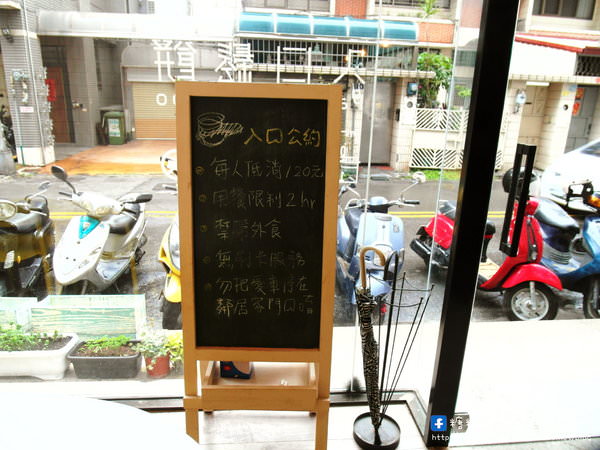 入口公約
每人低消120元
用餐限制2hr
禁帶外食
無刷卡服務
勿把愛車停在
鄰居家門口唷